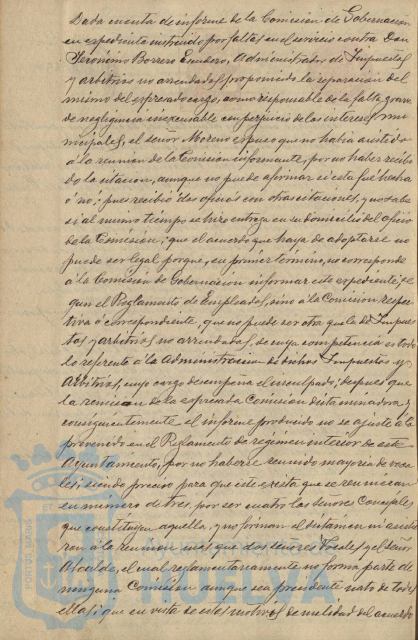 Dada cuenta de informe de la Comisión de Gobernación
en expediente instruido por faltas en el servicio contra Don
Jerónimo Borrero Escudero, Administrador de Impuestos
y arbitrios no arrendados, proponiendo la separación del
mismo del espresado cargo, como responsable de la falta grave
de negligencia inexcusable en perjuicio de los intereses mu-
nicipales, el señor Moreno espuso que no había asistido
á la reunion de la Comisión informante, por no haber recibi-
do la citacion, aunque no puede afirmar si esta fué hecha
ó nó; pues recibió dos oficios con otras citaciones, y no sabe
si al mismo tiempo se hizo entrega en su domicilio del oficio
de la Comisión; que el acuerdo que haya de adoptarse no
puede ser legal porque, en primer término, no corresponde
á la Comisión de Gobernación informar este expediente, se-
gun el Reglamento de Empleados, sino á la Comisión respec-
tiva ó correspondiente, que no puede ser otra que la de Impues-
tos y arbitrios no arrendados, de cuya competencia es todo
lo referente á la Administracion de dichos Impuestos y
Arbitrios, cuyo cargo desempeña el inculpado; despues que
la reunion de la espresada Comisión dictaminadora y
consiguientemente el informe producido no se ajusta á lo
prevenido en el Reglamento de régimen interior de este
Ayuntamiento, por no haberse reunido mayoría de voca-
les, siendo preciso para que esta exista que se reunieran
en número de tres, por ser cuatro los señores Concejales
que constituyen aquella, y no forman el dictamen ni asistie-
ron á la reunion más que dos señores Vocales y el señor
Alcalde, el cual reglamentariamente no forma parte de
ninguna Comisión aunque sea presidente nato de todas
ellas; que en vista de estos motivos de nulidad del acuerdo
PORTUS MARIS
HUELVA